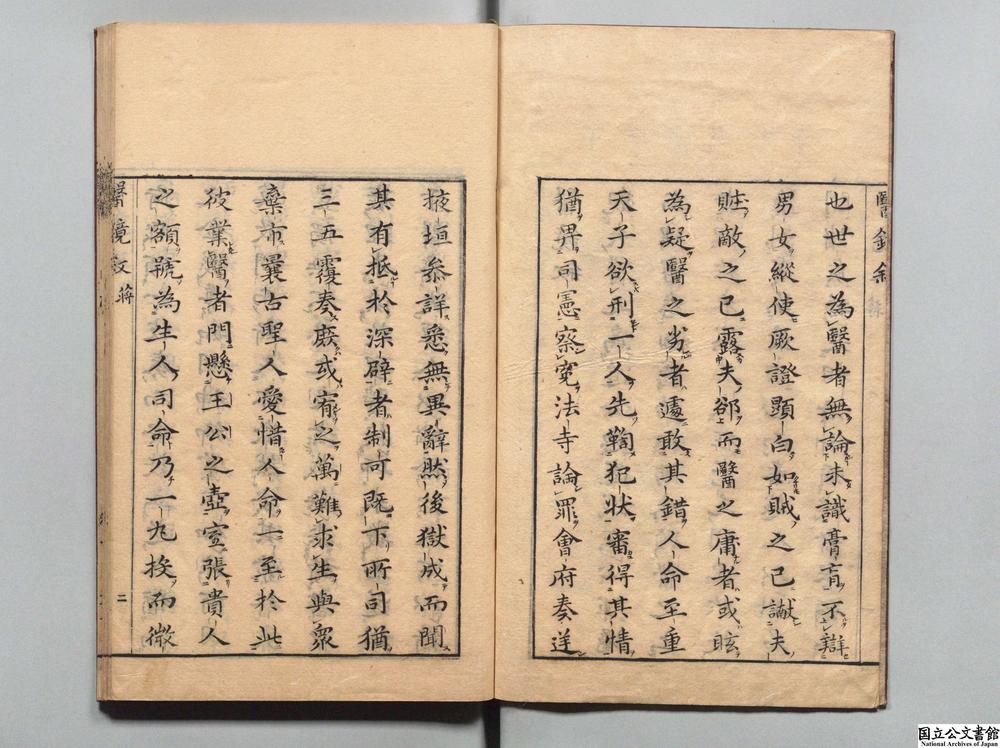 也世之為醫者無論未識膏肓不辯
男女縱使厥證顕白如賊之已讞夫
賍敵之已露夫郤而醫之庸者或眩
為疑醫之劣者遽敢其錯人命至重
天子欲刑一人先鞫犯状審得其情
猶畀司憲察寃法寺論罪會府奏送
掖垣叅詳悉無異辭然後獄成而聞
其有抵於深辟者制可既下所司猶
三五覆奏庶或宥之萬難求生與衆
棄市曩古聖人愛惜人命一至於此
彼業醫者門懸王公之壺室張貴人
之額號為生人司命乃一九投而微
醫鏡敘
蒋
二
国立公文書館
National Archives of Japan